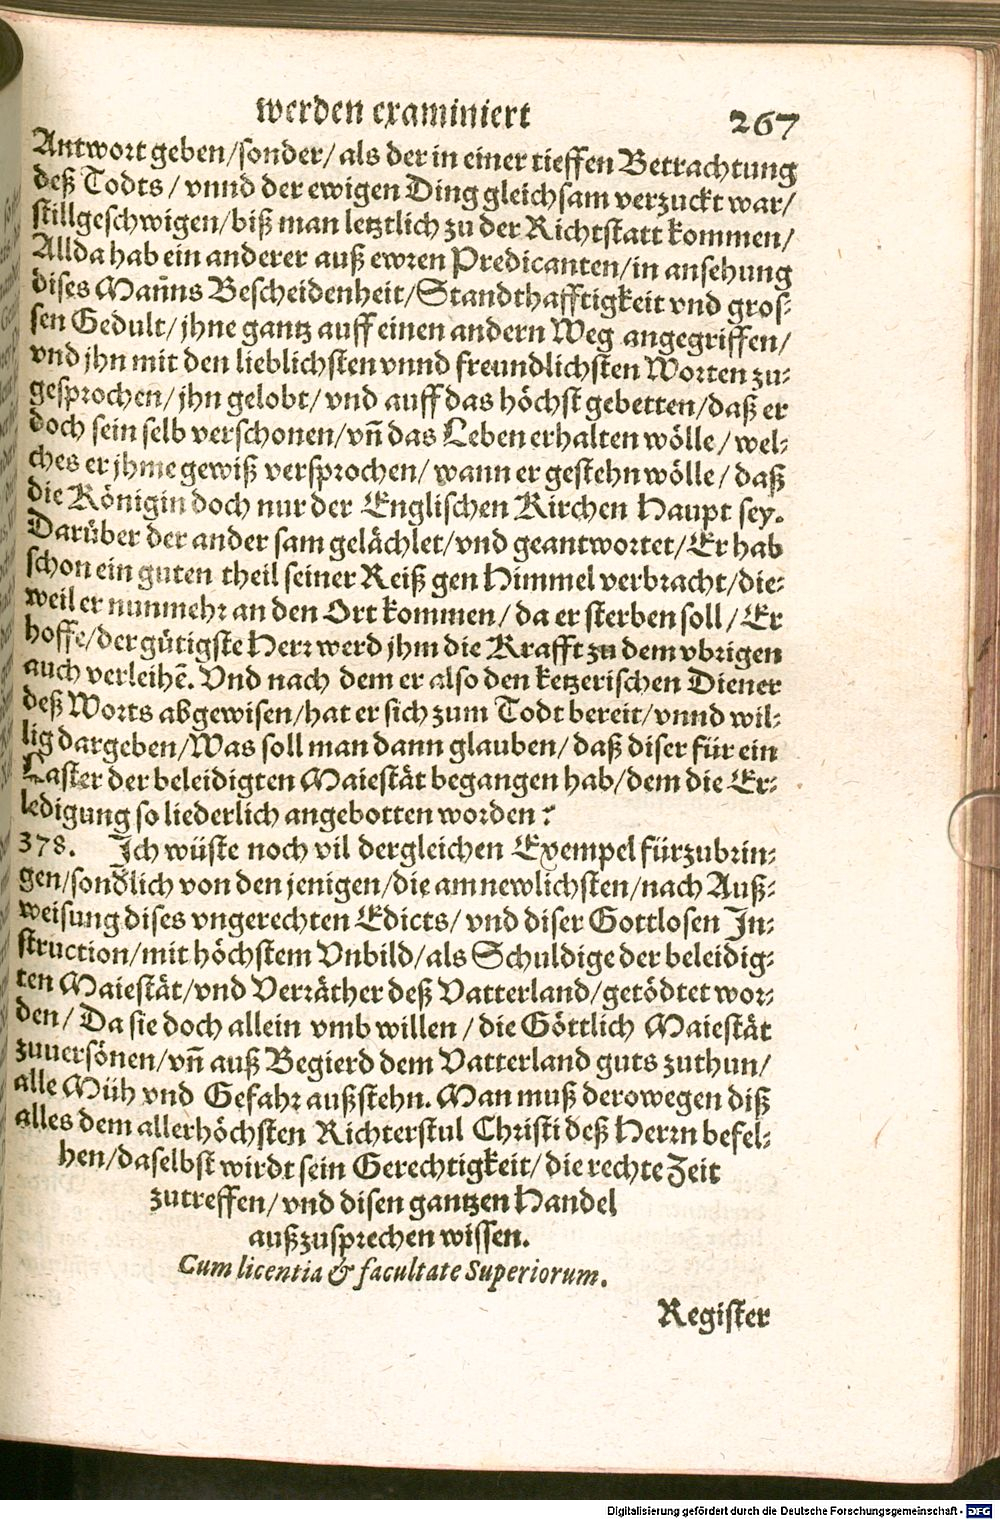 werden examiniert 267
Antwort geben/sonder/ als der in einer tieffen Betrachtung
deß Todts / vnnd der ewigen Ding gleichsam verzuckt war/
stillgeschwigen/biß man letztlich zu der Richtstatt kommen/
Allda hab ein anderer auß ewren Predicanten/in ansehung
dises Mañns Bescheidenheit/Standthafftigkeit vnd gros-
sen Gedult/ jhne gantz auff einen andern Weg angegriffen/
vnd jhn mit den lieblichsten vnnd freundlichsten Worten zu-
gesprochen/ jhn gelobt/ vnd auff das höchst gebetten/daß er
doch sein selb verschonen/vñ das Leben erhalten wölle / wel-
ches er jhme gewiß versprochen/ wann er gestehn wölle / daß
die Königin doch nur der Englischen Kirchen Haupt sey.
Darüber der ander sam gelächlet/vnd geantwortet/Er hab
schon ein guten theil seiner Reiß gen Himmel verbracht/die-
weil er nunmehr an den Ort kommen/ da er sterben soll / Er
hoffe/der gütigste Herr werd jhm die Krafft zu dem vbrigen
auch verleihẽ. Vnd nach dem er also den ketzerischen Diener
deß Worts abgewisen/hat er sich zum Todt bereit/vnnd wil-
lig dargeben/Was soll man dann glauben/ daß diser für ein
Laster der beleidigten Maiestät begangen hab/dem die Er-
ledigung so liederlich angebotten worden?
378. Ich wüste noch vil dergleichen Exempel fürzubrin-
gen/sonđlich von den jenigen/die am newlichsten/nach Auß-
weisung dises vngerechten Edicts/ vnd diser Gottlosen In-
struction/mit höchstem Vnbild/als Schuldige der beleidig-
ten Maiestät/vnd Verräther deß Vatterland/getödtet wor-
den/ Da sie doch allein vmb willen / die Göttlich Maiestät
zuuersönen/vñ auß Begierd dem Vatterland guts zuthun/
alle Müh vnd Gefahr außstehn. Man muß derowegen diß
alles dem allerhöchsten Richterstul Christi deß Herrn befel-
hen/daselbst wirdt sein Gerechtigkeit/ die rechte Zeit
zutreffen/ vnd disen gantzen Handel
außzusprechen wissen.
Cum licentia & facultate Superiorum.
Register
Digitalisierung gefördert durch die Deutsche Forschungsgemeinschaft - DFG